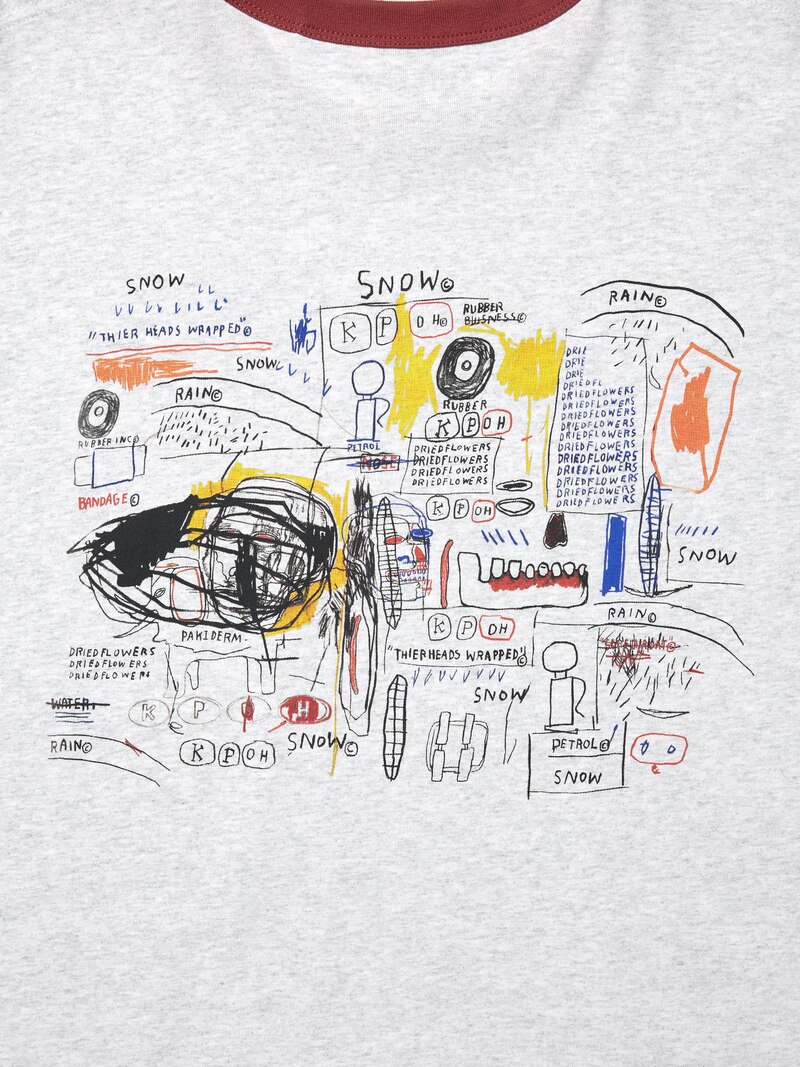 SNOW
"THIER HEADS WRAPPED"©
SNOW
RAIN©
RUBBER INC©
BANDAGE©
SNOW©
RUBBER
BUISNESS©
K P O H©
RUBBER
K P OH
PETROL
NOSE
DRIEDFLOWERS
DRIEDFLOWERS
DRIEDFLOWERS
DRIEDFLOWERS
K P OH
RAIN©
DRIE
DRIE
DRIE
DRIEDFL
DRIEDFLOWERS
DRIEDFLOWERS
DRIEDFLOWERS
DRIEDFLOWERS
DRIEDFLOWERS
DRIEDFLOWERS
DRIEDFLOWERS
DRIEDFLOWERS
DRIEDFLOWERS
DRIEDFLOWERS
SNOW
PAKIDERM.
DRIEDFLOWERS
DRIEDFLOWERS
DRIEDFLOWERS
WATER.
K P O H
RAIN©
K P OH
SNOW©
K P OH
"THIERHEADS WRAPPED"©
SNOW
RAIN©
PETROL©
SNOW